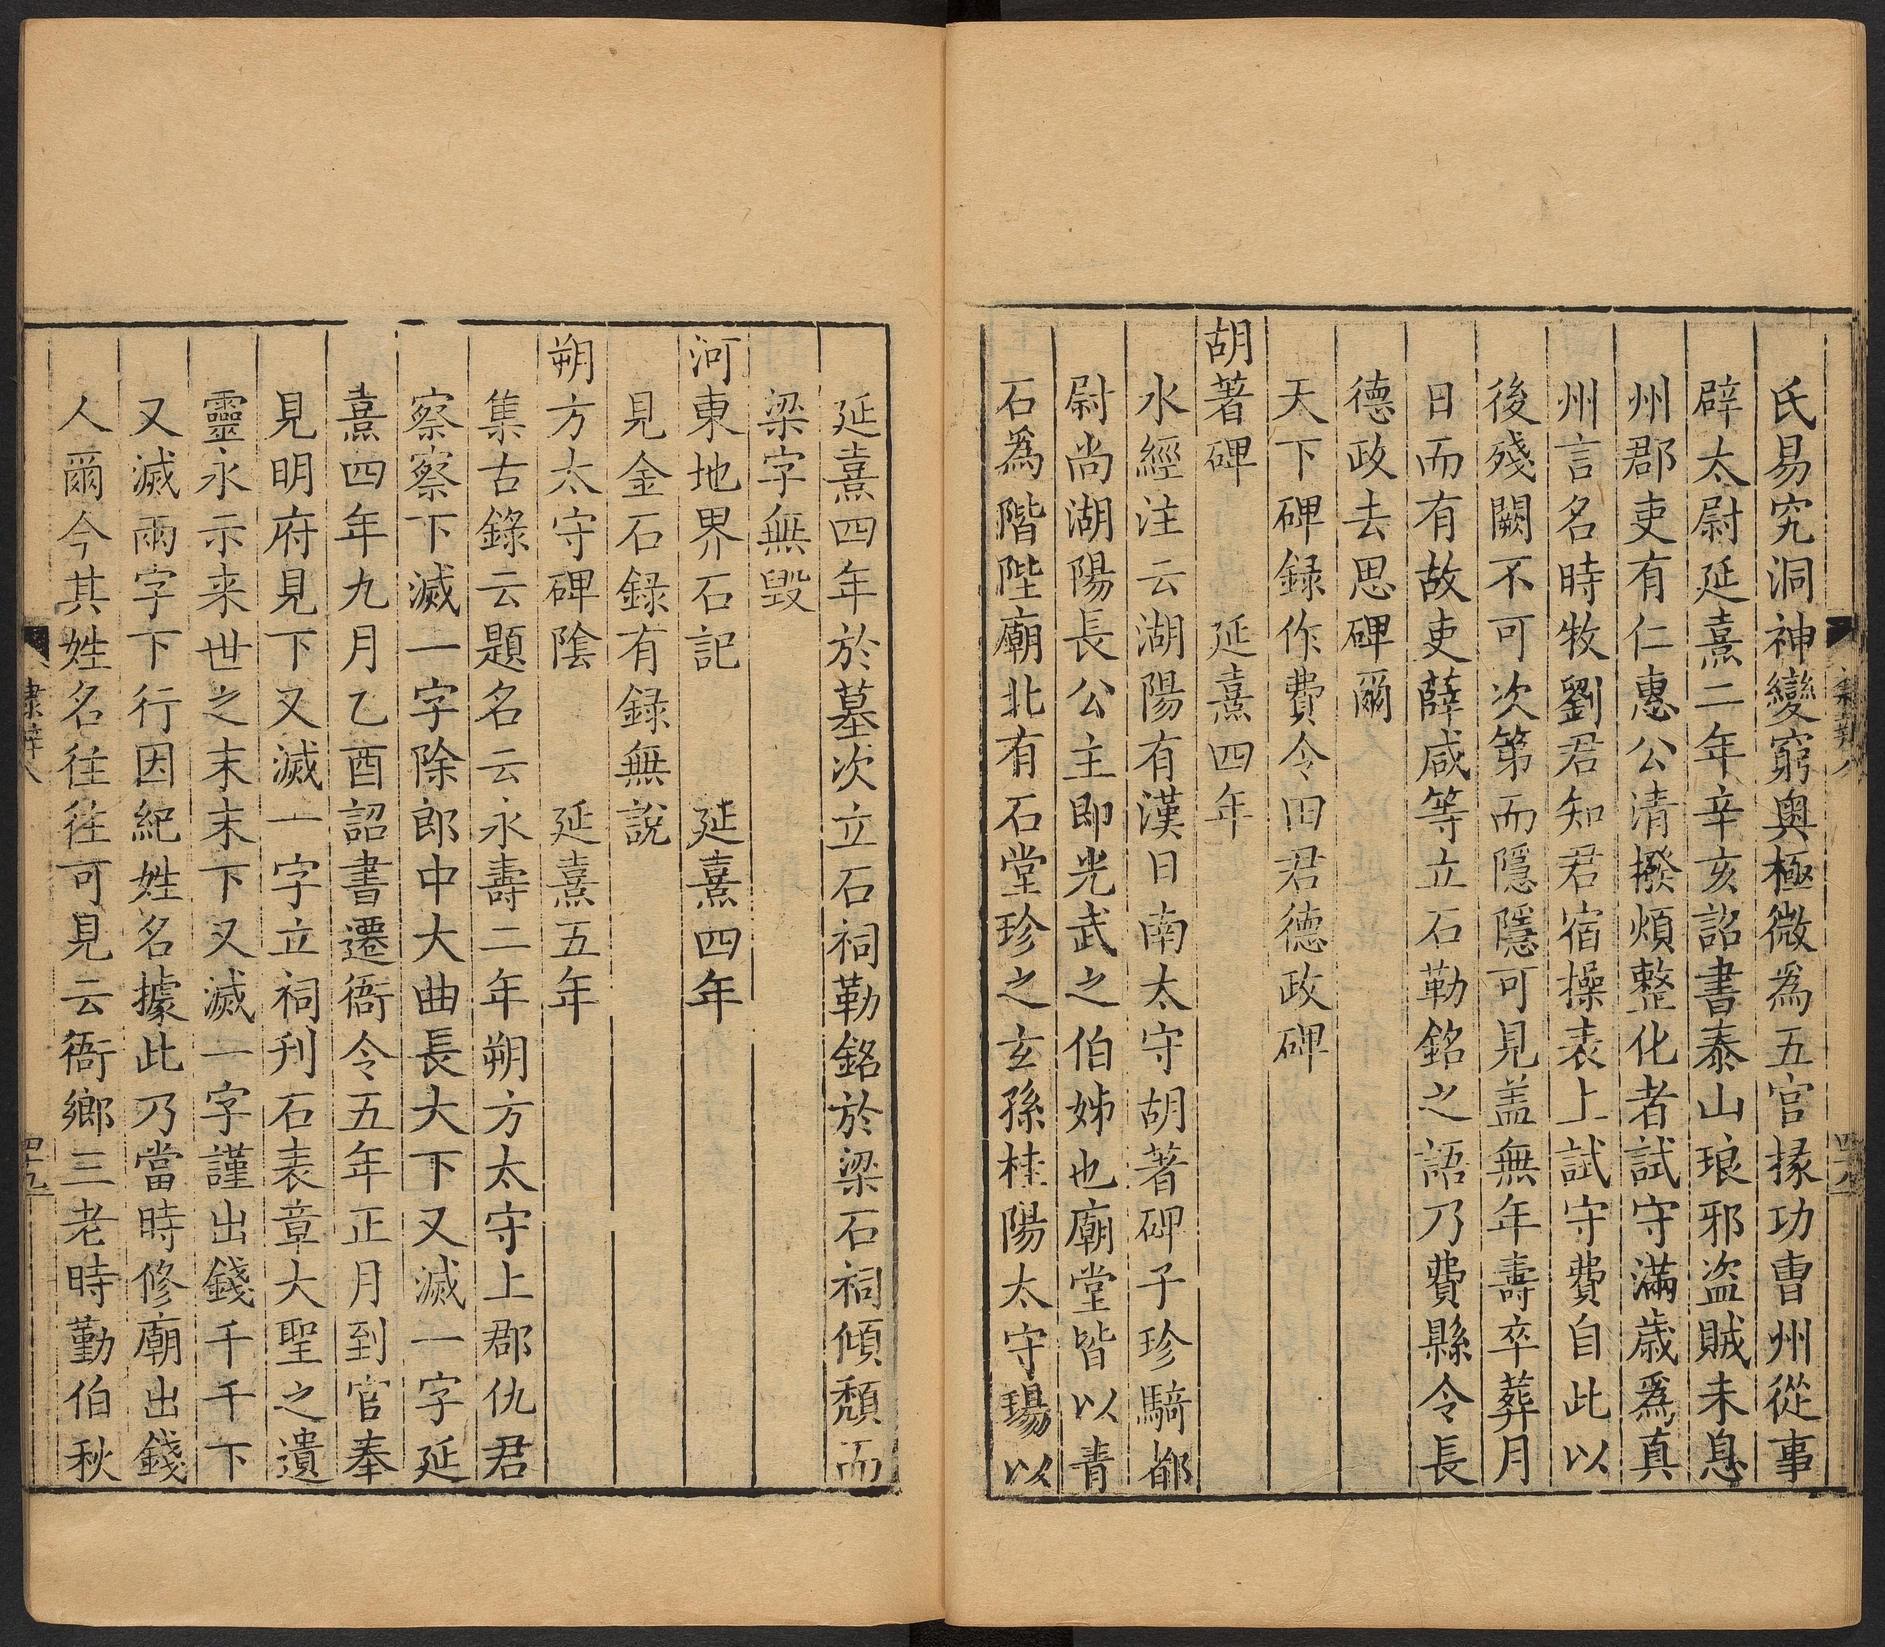 氏易究洞神變窮奧極微為五官掾功曹州從事
辟太尉延熹二年辛亥詔書泰山琅邪盜賊未息
州郡吏有仁惠公清撥煩整化者試守滿歲為真
州言名時牧劉君知君宿操表上試守費自此以
後殘闕不可次第而隱隱可見盖無年壽卒葬月
日而有故吏薛咸等立石勒銘之語乃費縣令長
德政去思碑爾
天下碑録作費令田君德政碑
胡著碑 延熹四年
水經注云湖陽有漢日南太守胡著碑子珍騎都
尉尚湖陽長公主即光武之伯姊也廟堂皆以青
石為階陛廟北有石堂珍之玄孫桂陽太守瑒以
延熹四年於墓次立石祠勒銘於梁石祠傾頹而
梁字無毀
河東地界石記 延熹四年
見金石錄有録無說
朔方太守碑隂 延熹五年
集古錄云題名云永壽二年朔方太守上郡仇君
察察下滅一字除郎中大曲長大下又滅一字延
熹四年九月乙酉詔書遷衙令五年正月到官奉
見明府見下又滅一字立祠刋石表章大聖之遺
靈永示来世之末末下又滅一字謹出錢千千下
又滅兩字下行因紀姓名據此乃當時修廟出錢
人爾今其姓名往往可見云衙鄉三老時勤伯秋
隸辨八
四十五